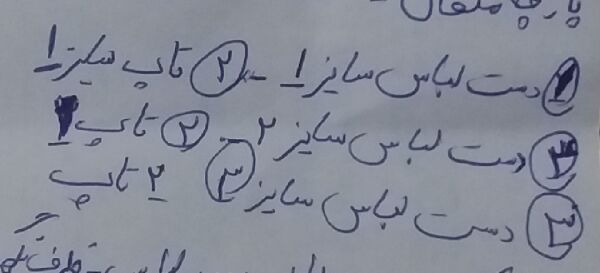 پارچه متقال -
۲ دست لباس سایز ۱ - ۲ تاپ سایز ۱
۳ دست لباس سایز ۲ - ۲ تاپ ۲
۳ دست لباس سایز ۳ ۲ تاپ